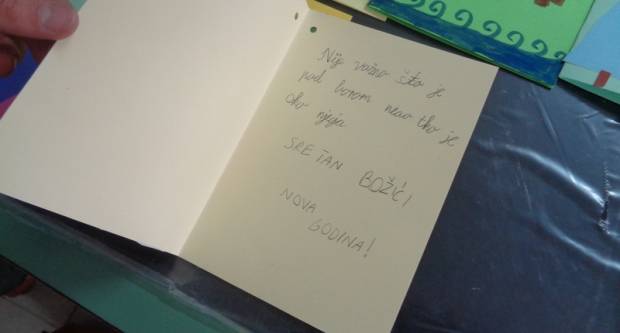 Nije važno što je
pod borom nego tko je
oko njega
SRETAN BOŽIĆ I
NOVA
GODINA!